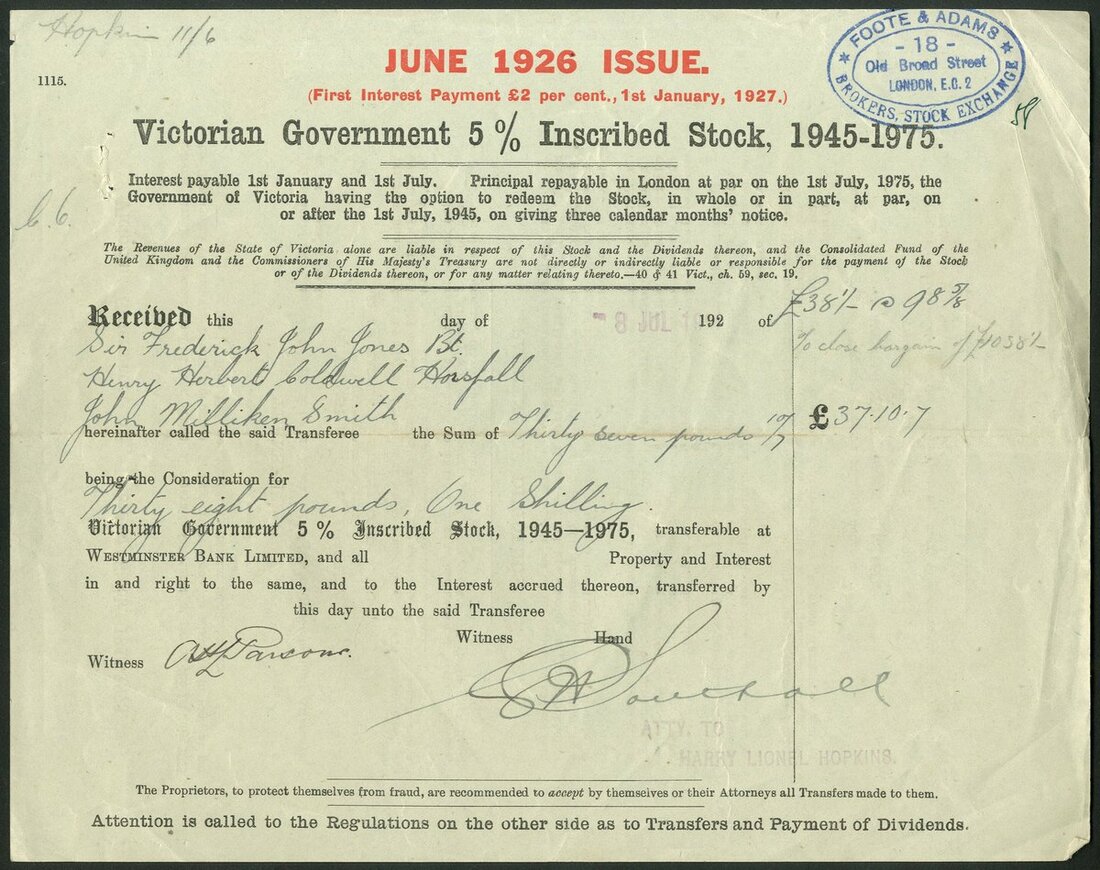 Hopkin 11/6
FOOTE & ADAMS
- 18 -
Old Broad Street
LONDON, E.C. 2
BROKERS, STOCK EXCHANGE
1115.
JUNE 1926 ISSUE.
(First Interest Payment £2 per cent., 1st January, 1927.)
Victorian Government 5 % Inscribed Stock, 1945-1975.
Interest payable 1st January and 1st July. Principal repayable in London at par on the 1st July, 1975, the
Government of Victoria having the option to redeem the Stock, in whole or in part, at par, on
or after the 1st July, 1945, on giving three calendar months' notice.
The Revenues of the State of Victoria alone are liable in respect of this Stock and the Dividends thereon, and the Consolidated Fund of the
United Kingdom and the Commissioners of His Majesty's Treasury are not directly or indirectly liable or responsible for the payment of the Stock
or of the Dividends thereon, or for any matter relating thereto.—40 & 41 Vict., ch. 59, sec. 19.
£38 1/- @ 98 5/8
Received this day of 8 JUL 192 of
To close bargain of £1038 1/-
Sir Frederick John Jones Bt.
Henry Herbert Coldwell Horsfall
John Milliken Smith
hereinafter called the said Transferee the Sum of Thirty seven pounds 10/7 £ 37.10.7
being the Consideration for
Thirty eight pounds, One Shilling.
Victorian Government 5 % Inscribed Stock, 1945—1975, transferable at
WESTMINSTER BANK LIMITED, and all Property and Interest
in and right to the same, and to the Interest accrued thereon, transferred by
this day unto the said Transferee
Witness Hand
Witness Parsons.
Southall
ATTY. TO
HARRY LIONEL HOPKINS.
The Proprietors, to protect themselves from fraud, are recommended to accept by themselves or their Attorneys all Transfers made to them.
Attention is called to the Regulations on the other side as to Transfers and Payment of Dividends.